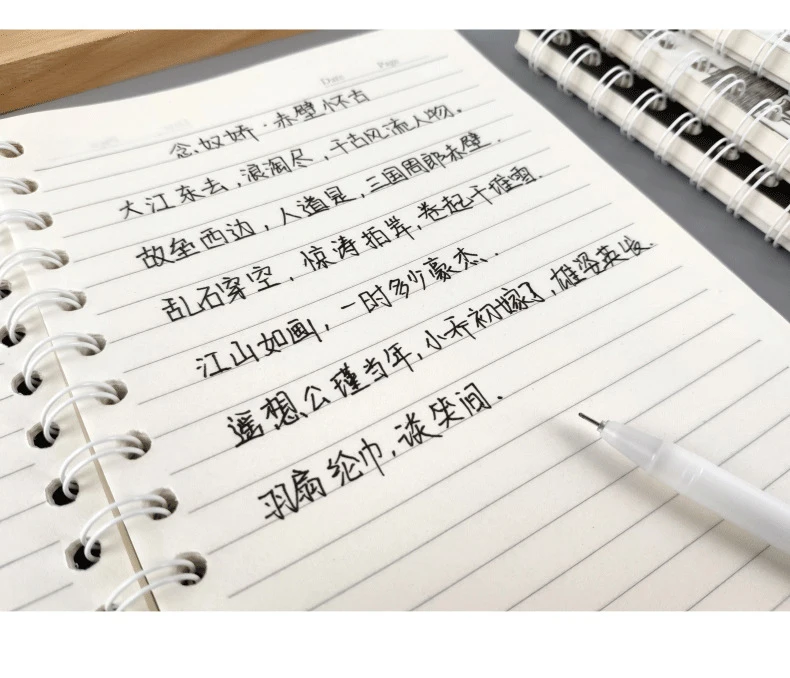 Date Page
念奴娇·赤壁怀古
大江东去,浪淘尽,千古风流人物。
故垒西边,人道是,三国周郎赤壁.
乱石穿空,惊涛拍岸,卷起千堆雪.
江山如画,一时多少豪杰.
遥想公瑾当年,小乔初嫁了,雄姿英发.
羽扇纶巾,谈笑间.